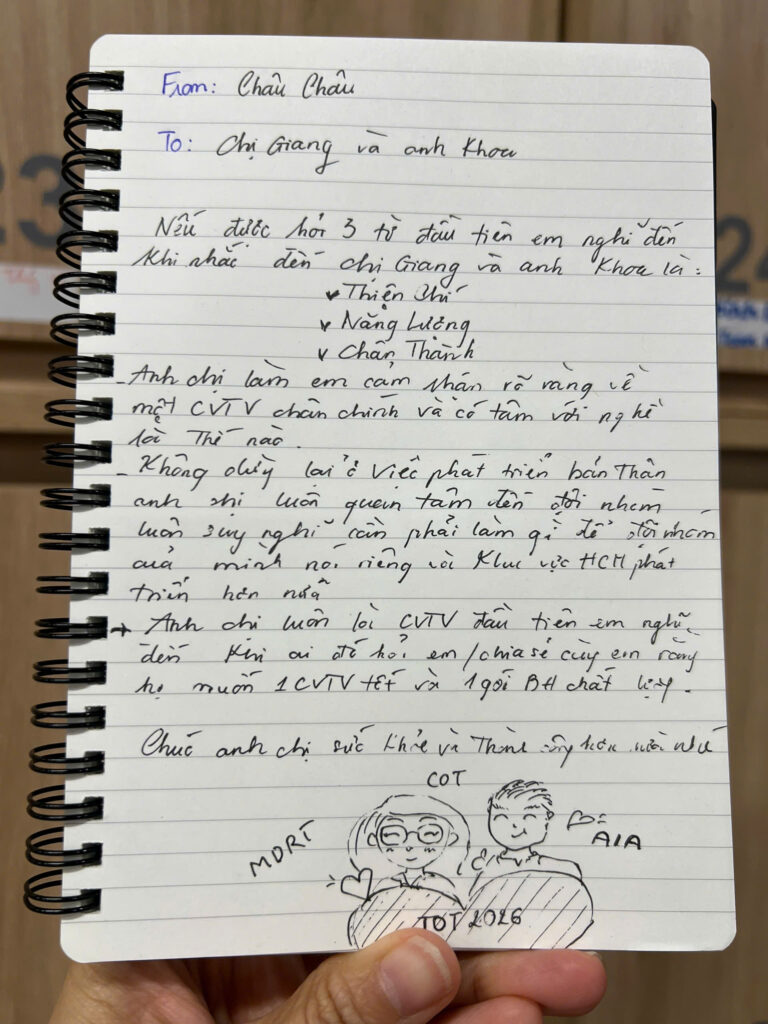 From: Châu Châu
To: Chị Giang và anh Khoa
Nếu được hỏi 3 từ đầu tiên em nghĩ đến
khi nhắc đến chị Giang và anh Khoa là:
Thiện Chí
Năng Lượng
Chân Thành
- Anh chị làm em cảm nhận rõ ràng về
một CVTV chân chính và có tâm với nghề
là thế nào.
- Không dừng lại ở việc phát triển bản thân
anh chị luôn quan tâm đến đội nhóm,
luôn suy nghĩ cần phải làm gì để đội nhóm
của mình nói riêng và Khu vực HCM phát
triển hơn nữa
→ Anh chị luôn là CVTV đầu tiên em nghĩ
đến khi ai đó hỏi em/chia sẻ cùng em rằng
họ muốn 1 CVTV tốt và 1 gói BH chất lượng.
Chúc anh chị sức khỏe và thành công hơn nữa nhé
COT
MDRT
AIA
TOT 2026
23
24